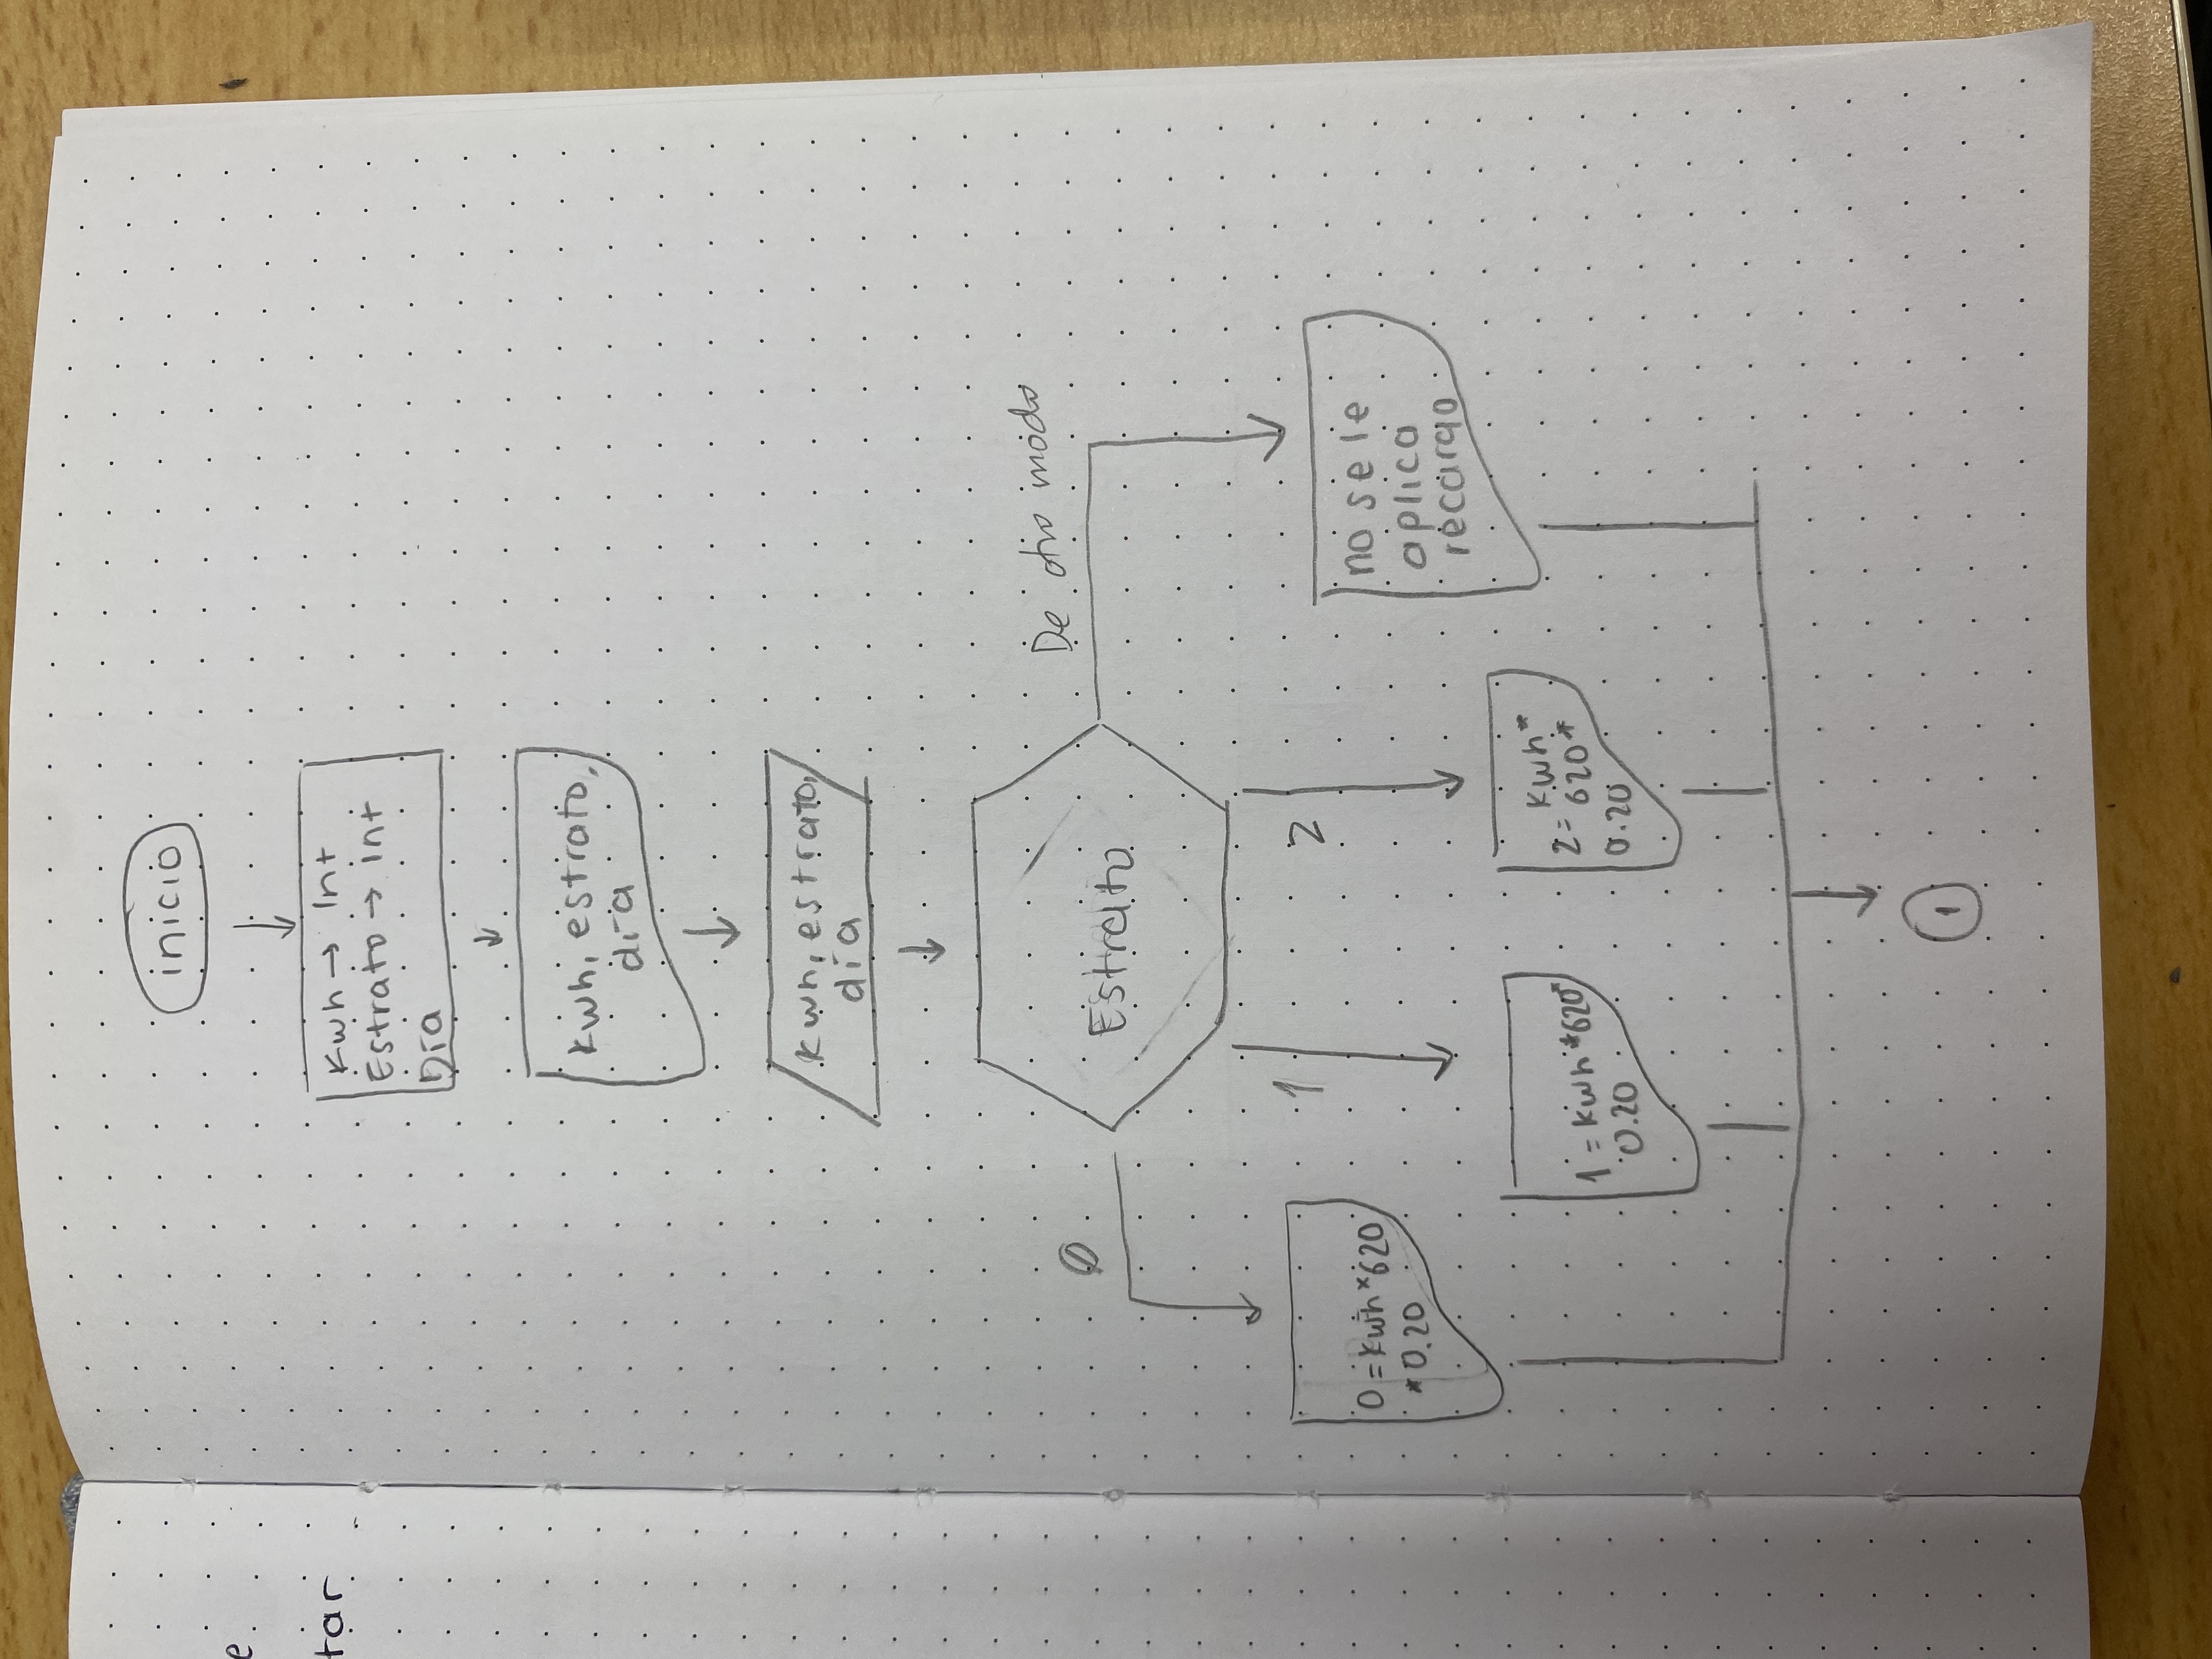 e
tar
inicio
Kwh → Int
Estrato → int
Día
Kwh, estrato,
día
Kwh, estrato,
día
Estrato
0
De otro modo
1
2
0 = kwh * 620
* 0.20
1 = kwh * 620*
0.20
2 = kwh *
620 *
0.20
no se le
aplica
recargo
1